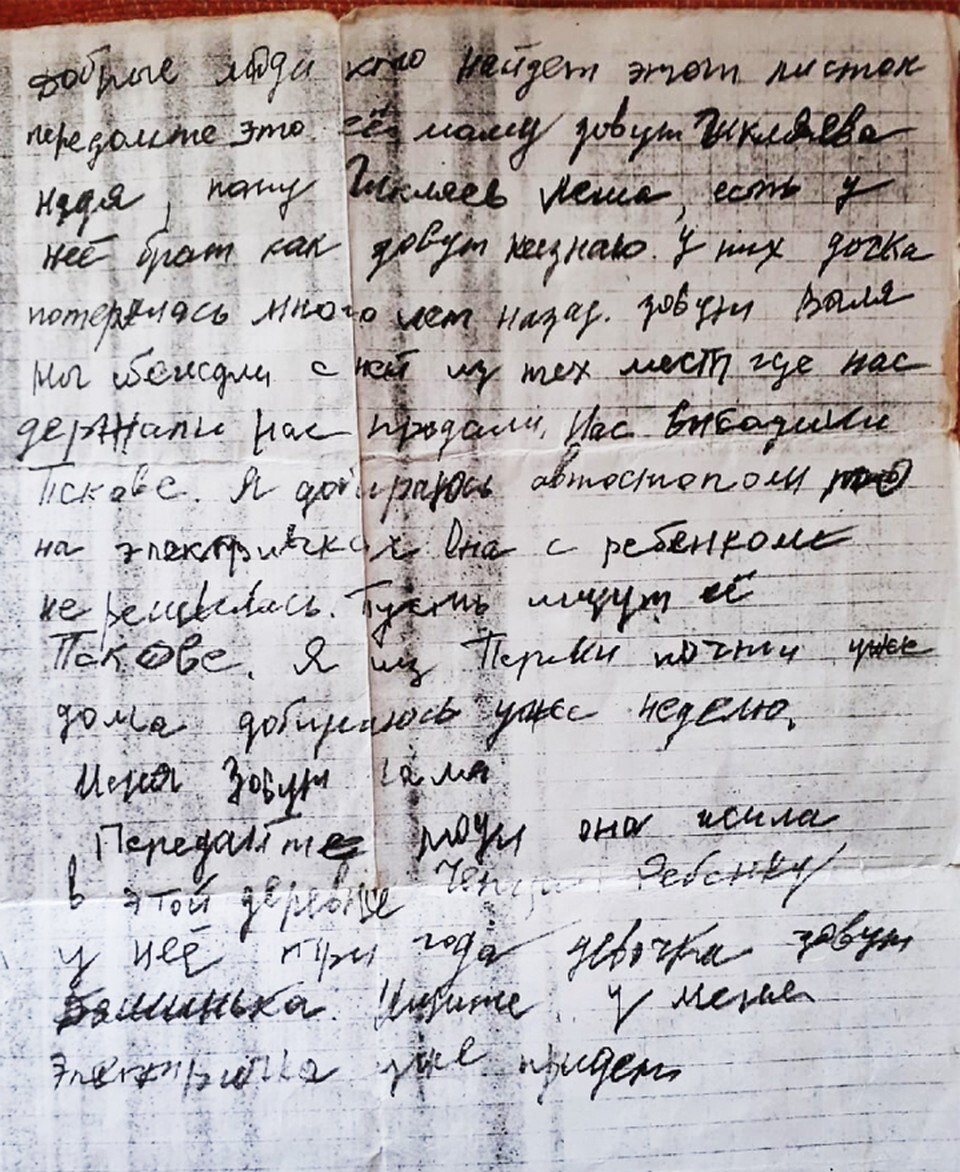 добрые люди кто найдет этот листок
передайте это. её маму зовут Чикляева
Надя, папу Чикляев Леша, есть у
неё брат как зовут незнаю. У них дочка
потерялась много лет назад. зовут Валя
мы бежали с ней из тех мест где нас
держали нас продали, Нас
Пскове. Я добираюсь автостопом
на электричках Она с ребенком
не решилась. Пусть ищут её
Пскове. Я из Перми почти уже
дома добираюсь уже неделю.
Меня Зовут
Передайте она жила
в этой деревне Ребенку
у неё три года девочка зовут
Ищите, у меня
Электричка уже придет